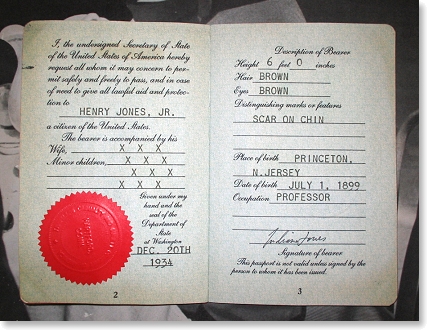 I, the undersigned Secretary of State
of the United States of America hereby
request all whom it may concern to per-
mit safely and freely to pass, and in case
of need to give all lawful aid and protec-
tion to
HENRY JONES, JR.
a citizen of the United States.
The bearer is accompanied by his
Wife, X X X
Minor children, X X X
X X X
X X X
Given under my
hand and the
seal of the
Department of
State
at Washington
DEC. 20TH
1934
2
Description of Bearer
Height 6 feet 0 inches
Hair BROWN
Eyes BROWN
Distinguishing marks or features
SCAR ON CHIN
Place of birth PRINCETON,
N.JERSEY
Date of birth JULY 1, 1899
Occupation PROFESSOR
Indiana Jones
Signature of bearer
This passport is not valid unless signed by the
person to whom it has been issued.
3